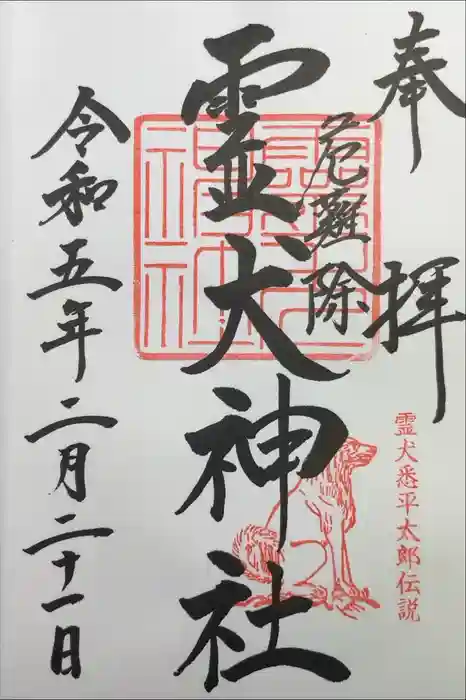 奉拝
霊犬悉平太郎伝説
危難除
霊犬神社
令和五年二月二十一日